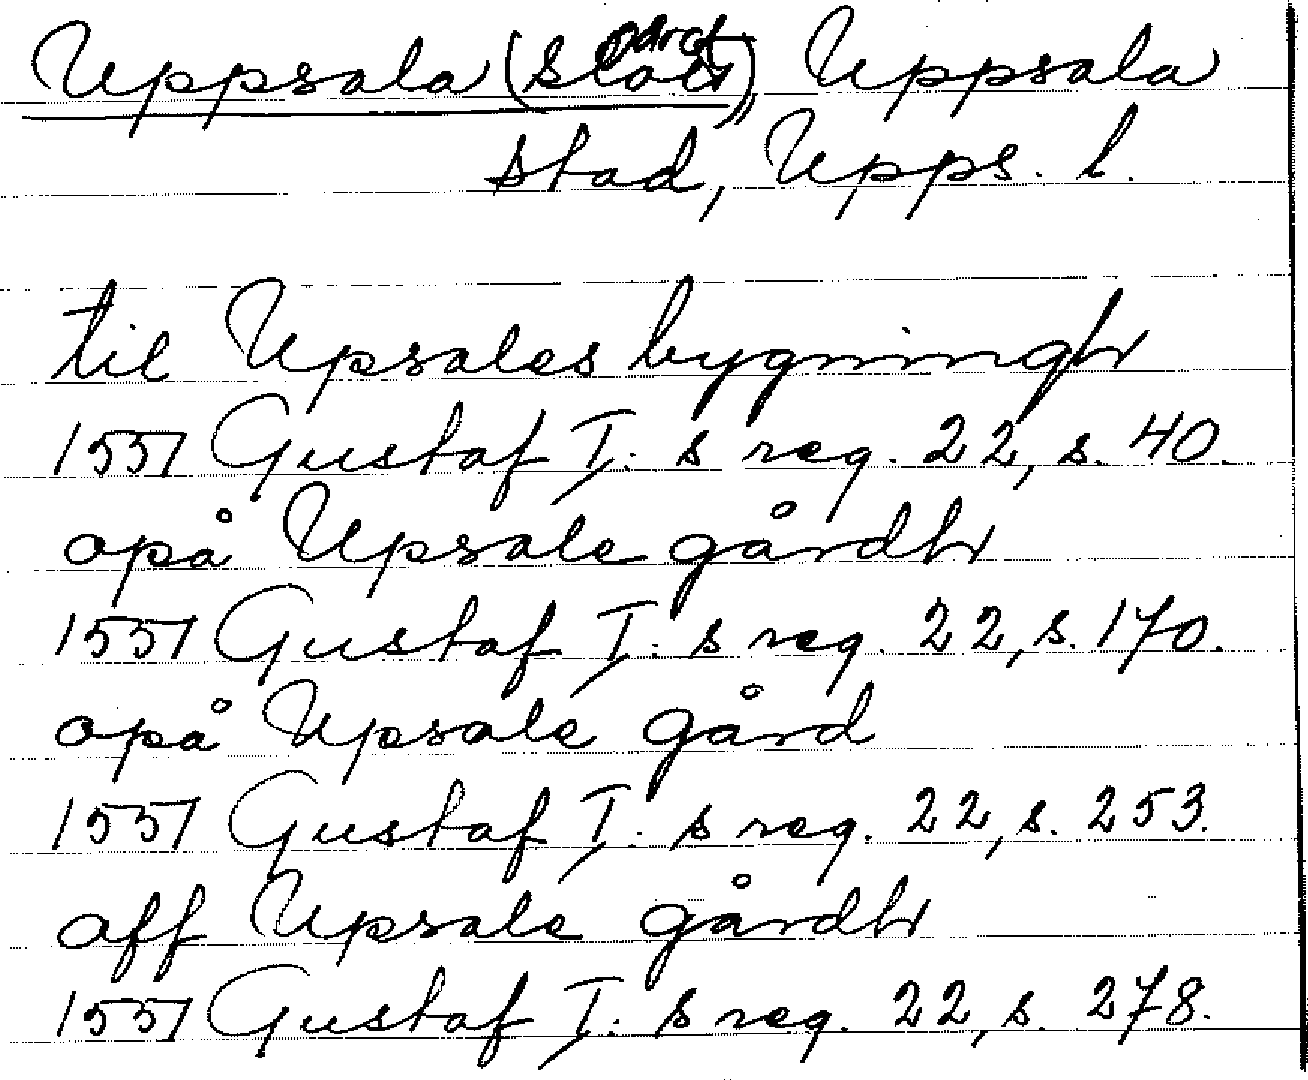 Uppsala (slott) Uppsala
stad, Upps. l.
til Upsales bygningh
1551 Gustaf I:s reg. 22, s. 40.
opå Upsale gårdh
1551 Gustaf I:s reg. 22, s. 170.
opå Upsale gård
1551 Gustaf I:s reg. 22, s. 253.
aff Upsale gårdh
1551 Gustaf I:s reg. 22, s. 278.